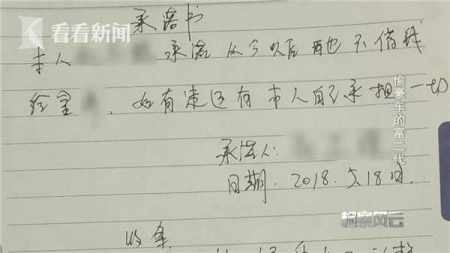 看看新闻
承诺书
本人 承诺 从今以后 再也不借钱
给金 ，如有违返有本人自己承担一切
偷豪车的富二代
承诺人：
日期．2018．5.18日．
检察风云
收条